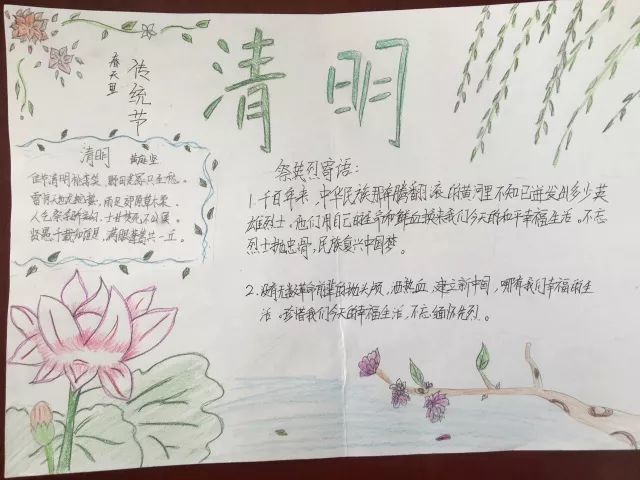 清明
传统节
春天里
清明 黄庭坚
佳节清明桃李笑，野田荒冢只生愁。
雷惊天地龙蛇蛰，雨足郊原草木柔。
人乞祭余骄妾妇，士甘焚死不公侯。
贤愚千载知谁是，满眼蓬蒿共一丘。
祭英烈寄语：
1.千百年来，中华民族那奔腾翻滚的黄河里不知已迸发出多少英
雄烈士。他们用自己的生命和鲜血换来我们今天的和平幸福生活。不忘
烈士抛忠骨，民族复兴中国梦。
2.没有无数革命前辈的抛头颅，洒热血，建立新中国，哪有我们幸福的生
活。珍惜我们今天的幸福生活，不忘缅怀先烈。